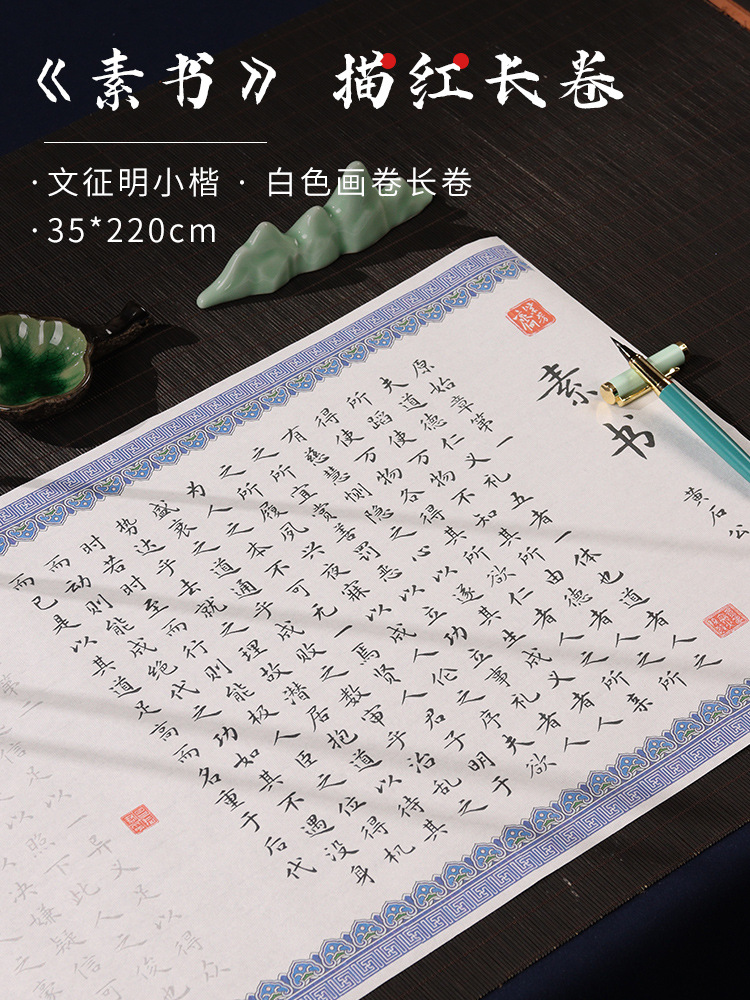 《素书》 描红长卷
·文征明小楷 · 白色画卷长卷
·35*220cm
素书
黄石公
原始章第一
夫道德仁义礼五者一体也道者人之
所蹈使万物不知其所由德者人之所
得使万物各得其所欲仁者人之所亲
有慈慧恻隐之心以遂其生成义者人
之所宜赏善罚恶以立功立事礼者人
之所履夙兴夜寐以成人伦之序夫欲
为人之本不可无一焉贤人君子明于
盛衰之道通乎成败之数审乎治乱之
势达乎去就之理故潜居抱道以待其
时若时至而行则能极人臣之位得机
而动则能成绝代之功如其不遇没身
而已是以其道足高而名重于后代